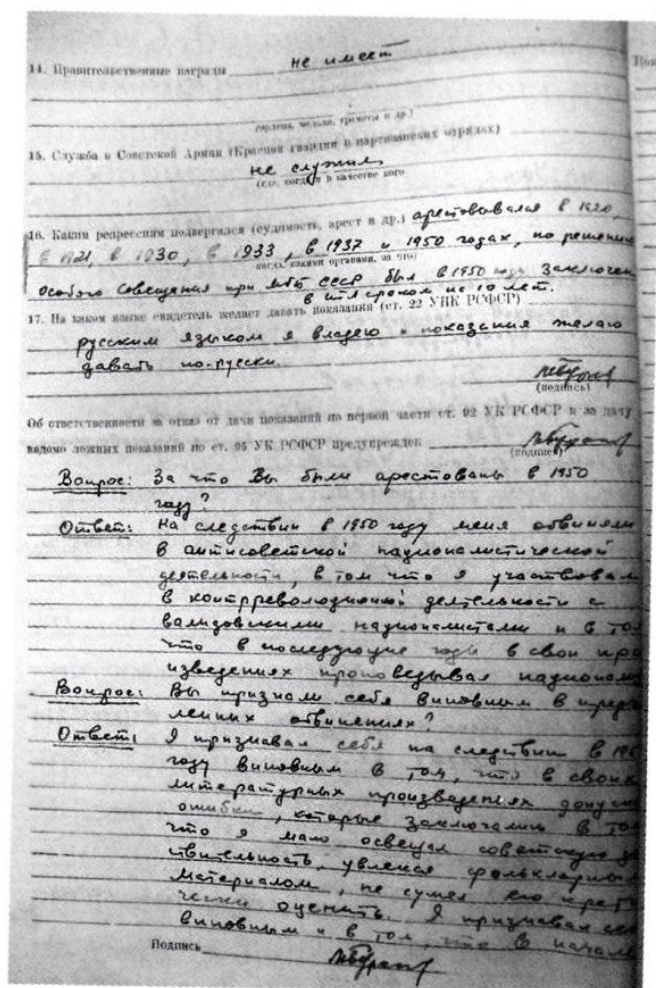 14. Правительственные награды не имеет
(ордена, медали, грамоты и др.)
15. Служба в Советской Армии (Красной гвардии и партизанских отрядах)
не служил
(где, когда и в качестве кого
16. Каким репрессиям подвергался (судимость, арест и др.) арестовывался в 1920,
в 1921, в 1930, в 1933, в 1937 и 1950 годах, по решению
когда, какими органами, за что)
Особого Совещания при МГБ СССР был в 1950 году заключен
в ИТЛ сроком на 10 лет.
17. На каком языке свидетель желает давать показания (ст. 22 УПК РСФСР)
русским языком я владею и показания желаю
давать по-русски.
(подпись)
Об ответственности за отказ от дачи показаний по первой части ст. 92 УК РСФСР и за дачу
ведомо ложных показаний по ст. 95 УК РСФСР предупрежден
(подпись)
Вопрос: За что Вы были арестованы в 1950
году?
Ответ: На следствии в 1950 году меня обвиняли
в антисоветской националистической
деятельности, в том что я участвовал
в контрреволюционной деятельности с
валидовскими националистами и в том
что в последующие годы в свои про
изведениях проповедывал национали
Вопрос: Вы признали себя виновным в предъ
ленных обвинениях?
Ответ: Я признавал себя на следствии в 195
году виновным в том, что в своих
литературных произведениях допуск
ошибки, которые заключались в том
что я мало освещал советскую де
ствительность, увлекся фольклорным
материалом, не сумел его крити
чески оценить. Я признавал себ
виновным и в том, что в начале
Подпись